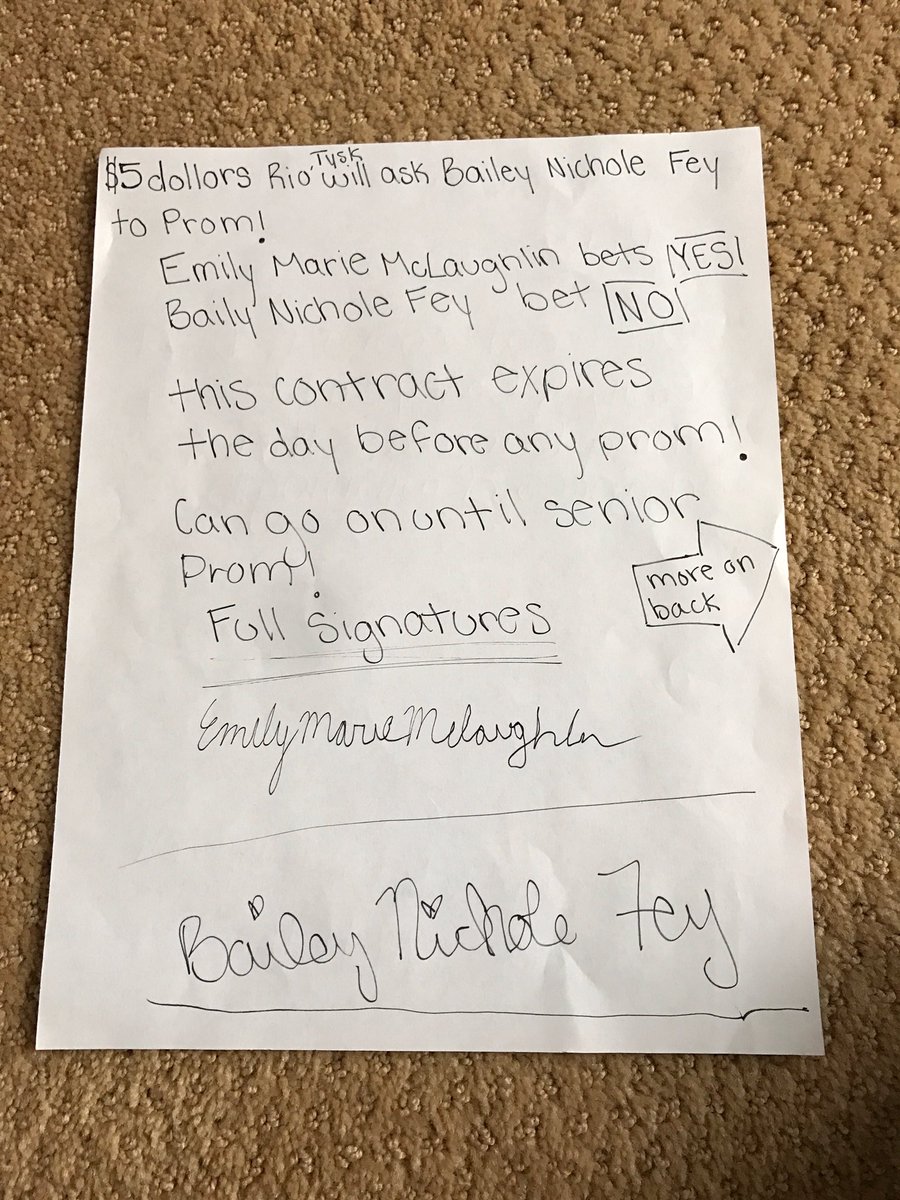 $5 dollors Rio Tysk will ask Bailey Nichole Fey
to Prom!
Emily Marie McLaughlin bets YES!
Baily Nichole Fey bet NO!
this contract expires
the day before any prom!
Can go on until senior
Prom!
more on
back
Full Signatures
Emily Marie Mclaughlin
Bailey Nichole Fey